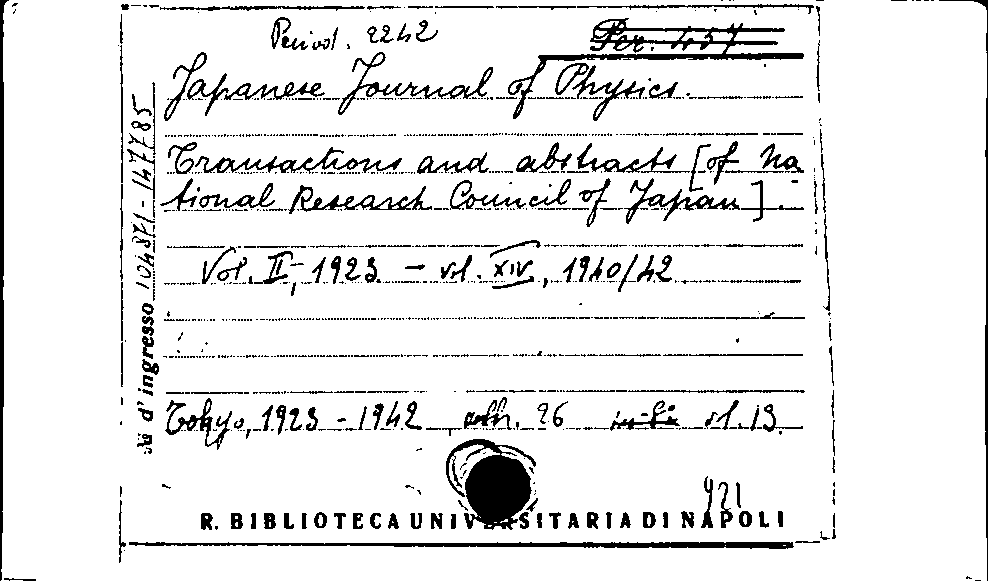 Period. 2242
Per. 457
Japanese Journal of Physics.
Transactions and abstracts [of Na
tional Research Council of Japan].
Vol. II, 1923 - vl. XIV, 1940/42
Tokyo, 1923 - 1942 26 vl. 13
N. d'ingresso 104371-147785
921
R. BIBLIOTECA UNIVERSITARIA DI NAPOLI